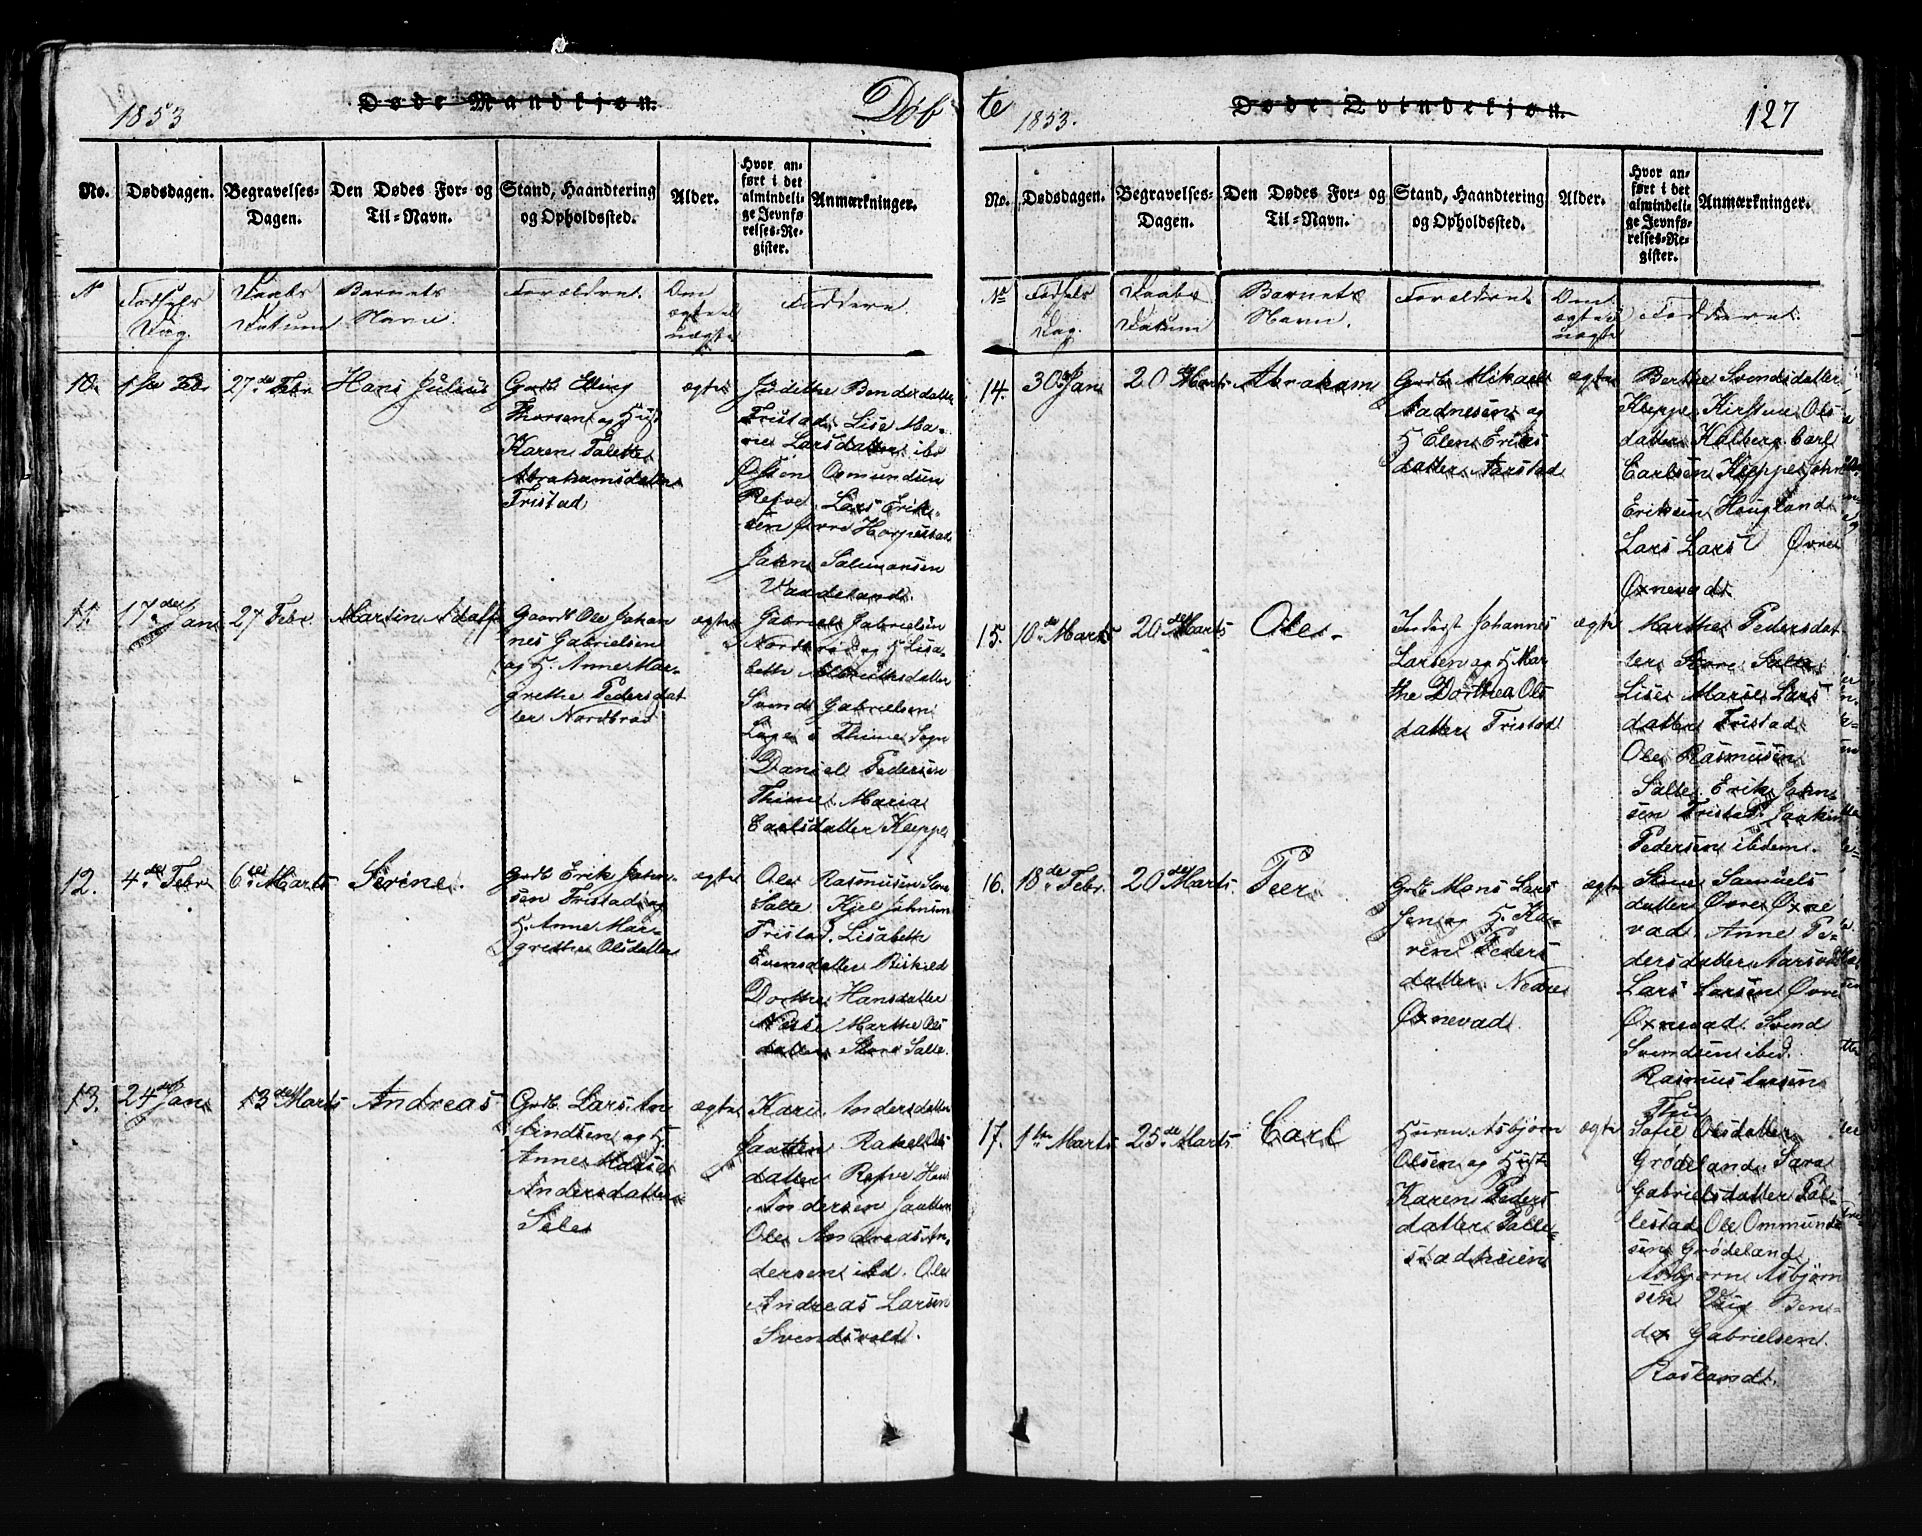 1853
Døde Mandkjøn.
Døb
No.
Dødsdagen.
Begravelses-
Dagen.
Den Dødes For- og
Til-Navn.
Stand, Haandtering
og Opholdssted.
Alder.
Hvor an-
ført i det
almindeli-
ge Jevnfø
relses-Re-
gister.
Anmærkninger.
N
Fødsels
Dag.
Daabs
Datum
Barnets
Navn.
Forældre.
Om
ægte el
uægte
Faddere.
10.
1ste Febr
27de Febr
Hans Julius
Gaardb Elling
Thorsen og Hust
Karen Talette
Abrahamsdatter
Tristad
ægte
Judithe Bendesdatter
Tristad, Lise Ma-
rie Larsdatter ib.
Østen Osmundsen
Refve, Lars Erik-
sen Øvre Horpestad
John Salmonsen
Vaadeland.
11.
17de Jan
27 Febr
Martin Adolf
Gaardb Ole Johan
nes Gabrielsen
og H. Anne Mar-
grethe Pedersdat
ter Nordbrød
ægte
Gabriel Gabrielsen
Nordbrød og H Lisa-
beth Albretsdatter
Svend Gabrielsen
Lage i Thime Sogn
Daniel Pedersen
Thime. Maria
Carlsdatter Kleppe
12.
4de Febr
6te Marts
Serine.
Grdb Erik John-
sen Tristad og
H. Anne Mar-
grethe Olsdatter
ægte
Ole Rasmusen Store
Salte Kjel Johnsen
Tristad. Lisabeth
Evensdatter Riskild
Dorthe Hansdatter
Næse Marthe Ols
datter Store Salte.
13.
24de Jan
13de Marts
Andreas
Grdb. Lars An
findsen og H.
Anne Marie
Andersdatter
Sele
ægte
Kari Andersdatter
Jaatten Rakel Ols
datter Refve Hans
Andersen Jaatten
Ole Andreas An-
dersen ibd. Ole
Andreas Larsen
Svendsvold.
te
1853.
Døde Qvindekjøn.
127
No.
Dødsdagen.
Begravelses-
Dagen.
Den Dødes For- og
Til-Navn.
Stand, Haandtering
og Opholdssted.
Alder.
Hvor an-
ført i det
almindeli-
ge Jevnfø-
relses-Re-
gister.
Anmærkninger.
No
Fødsels
Dag.
Daabs
Datum
Barnets
Navn.
Forældre.
Om
ægte el
uægte
Faddere.
14.
30 Jan
20 Marts
Abraham
Grdb Mikael
Aadnesen og
H Elen Eriks
datter Aarstad
ægte
Berthe Svendsdatter
Kleppe, Kirstine Ols
datter Kalberg. Carl
Carlsen Kleppe John
Eriksen Hougland
Lars Lars Øvre
Oxnevad
15.
10de Marts
20de Marts
Ole.
Inderst Johannes
Larsen og H Mar
the Dorthea Ols
datter Tristad
ægte
Marthe Pedersdat
ter Store Salte
Lise Marie Lars
datter Tristad
Ole Rasmusen
Salte. Erik John-
sen Tristad. Joakim
Pedersen ibdem.
16.
18de Febr.
20de Marts
Peer
Grdb Mons Lars
sen og H. Ka-
ren Peders
datter Nedre
Øxnevad
ægte
Stine Samuels
datter Øvre Øxne
vad. Anne Pe-
dersdatter Aarsvold
Lars Larsen Øvre
Øxnevad. Svend
Svendsen ibid.
Rasmus Larsen
Thu
17.
1ste Marts
25de Marts
Carl
Huusm. Asbjørn
Olsen og Hust
Karen Peders
datter Palle-
stadhuien
ægte
Sofie Olsdatter
Grødeland. Sara
Gabrielsdatter Pal-
lestad Ole Ommund
sen Grødeland
Asbjørn Asbjørn
sen Vig Ben-
det Gabrielsen
Rosland.